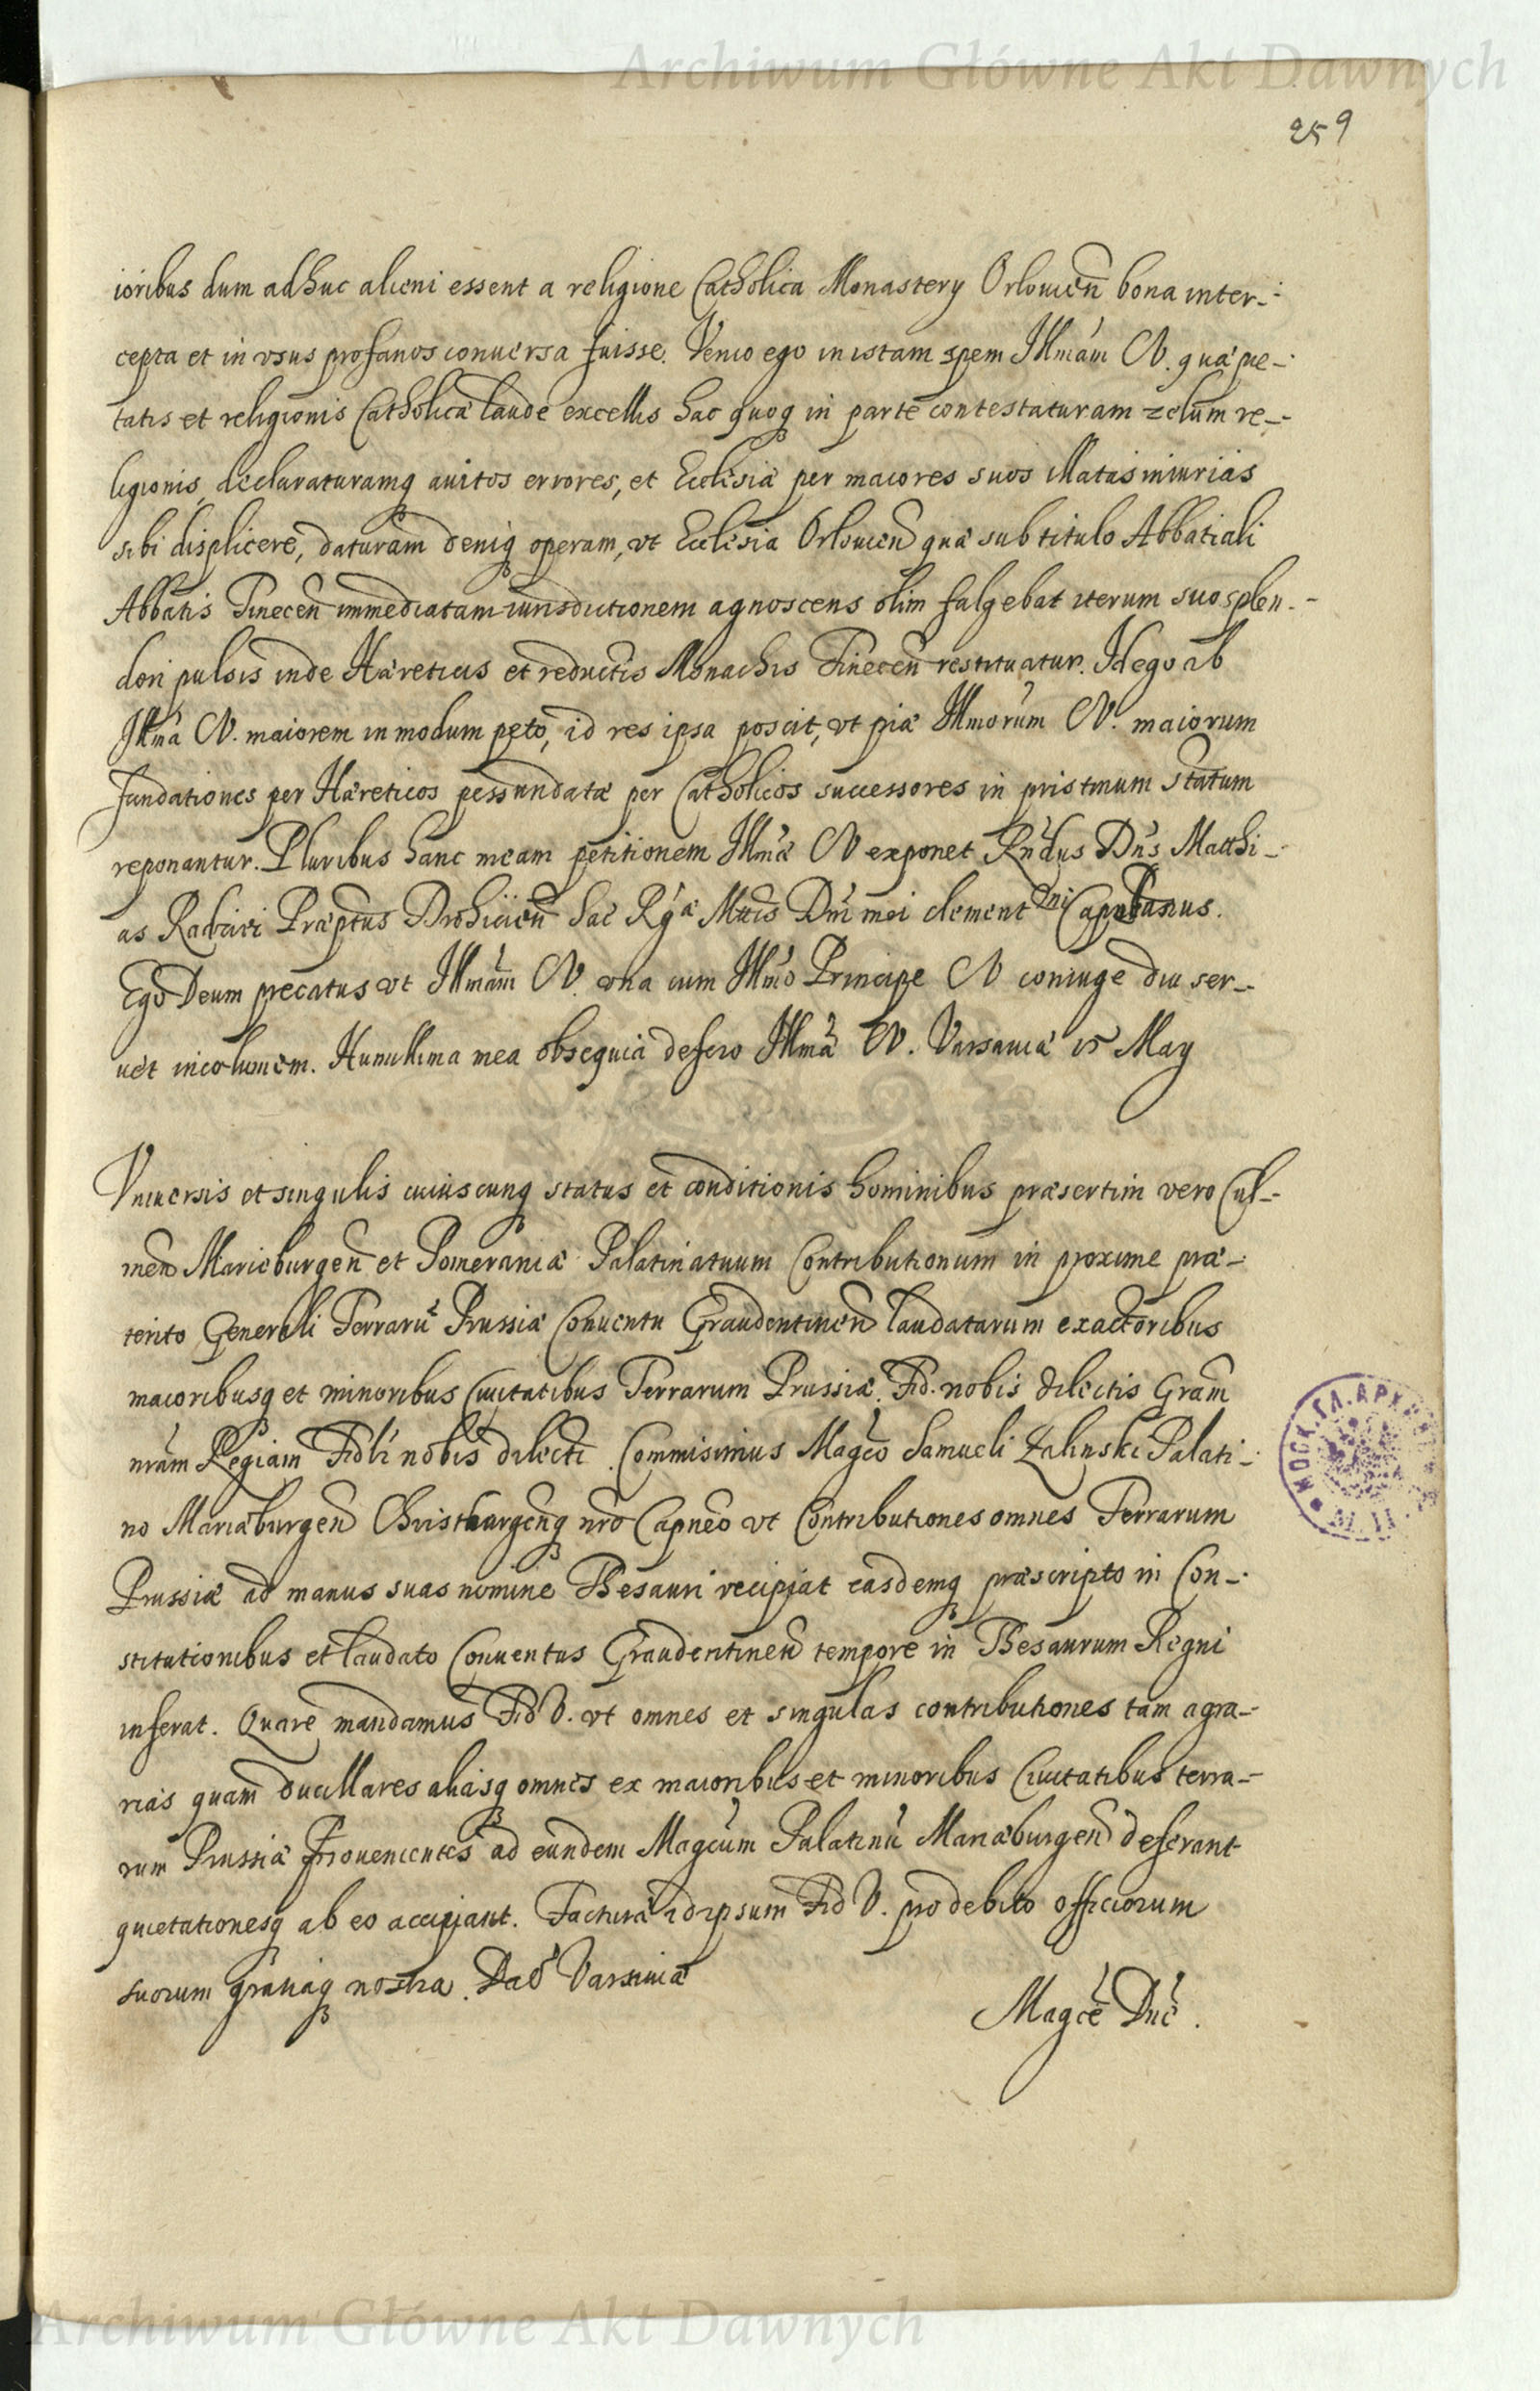 Archiwum Główne Akt Dawnych
259
ioribus dum adhuc alieni essent a religione Catholica Monastery Orlouien̄ bona inter-
cepta et in vsus profanos conuersa fuisse. Venio ego in istam spem Illmam V. quæ pie-
tatis et religionis Catholicæ laude excellis hac quoq in parte contestaturam zelum re-
ligionis, declaraturamq auitos errores, et Ecclesiæ per maiores suos illatas iniurias
sibi displicere, daturam deniq operam, vt Ecclesia Orlouien̄ quæ sub titulo Abbatiali
Abbatis Tinecen̄ immediatam iurisdictionem agnoscens olim fulgebat iterum suo splen-
dori pulsis inde Hæreticis et reductis Monachis Tinecen̄ restituatur. Id ego ab
Illma V. maiorem in modum peto, id res ipsa poscit, vt piæ Illmorum V. maiorum
fundationes per Hæreticos pessundatæ per Catholicos successores in pristinum statum
reponantur. Pluribus hanc meam petitionem Illmæ V exponet Rndus Dns Matthi-
as Præptus Drohicien̄ Sac Rgæ Mttis Dni mei clement Dni Capellanus.
Ego Deum precatus vt Illmam V. vna cum Illmo Principe V coniuge diu ser-
uet incolumem. Humillima mea obsequia defero Illmæ V. Varsauiæ 15 May
Vniuersis et singulis cuiuscunq status et conditionis hominibus præsertim vero Cul-
men̄ Marieburgen̄ et Pomeraniæ Palatinatuum Contributionum in proxime præ-
terito Generali Terrarū Prussiæ Conuentu Graudentinen̄ laudatarum exactoribus
maioribusq et minoribus Ciuitatibus Terrarum Prussiæ. Fid. nobis dilectis Gram
nram Regiam Fidli nobis dilecti. Commisimus Magco Samueli Zalinski Palati-
no Mariæburgen̄ Christburgenq nro Capneo vt Contributiones omnes Terrarum
Prussiæ ad manus suas nomine Thesauri recipiat easdemq præscripto in Con-
stitutionibus et laudato Conuentus Graudentinen̄ tempore in Thesaurum Regni
inferat. Quare mandamus Fid V. vt omnes et singulas contributiones tam agra-
rias quam ducillares aliasq omnes ex maioribus et minoribus Ciuitatibus terra-
rum Prussiæ Prouenientes ad eundem Magcum Palatinū Mariæburgen̄ deferant
quietationesq ab eo accipiant. Facturæ id ipsum Fid V. pro debito officiorum
suorum gratiaq nostra. Dat Varsauiæ
Magcē Dnē.
МОСК. ГЛ. АРХИВ
Archiwum Główne Akt Dawnych